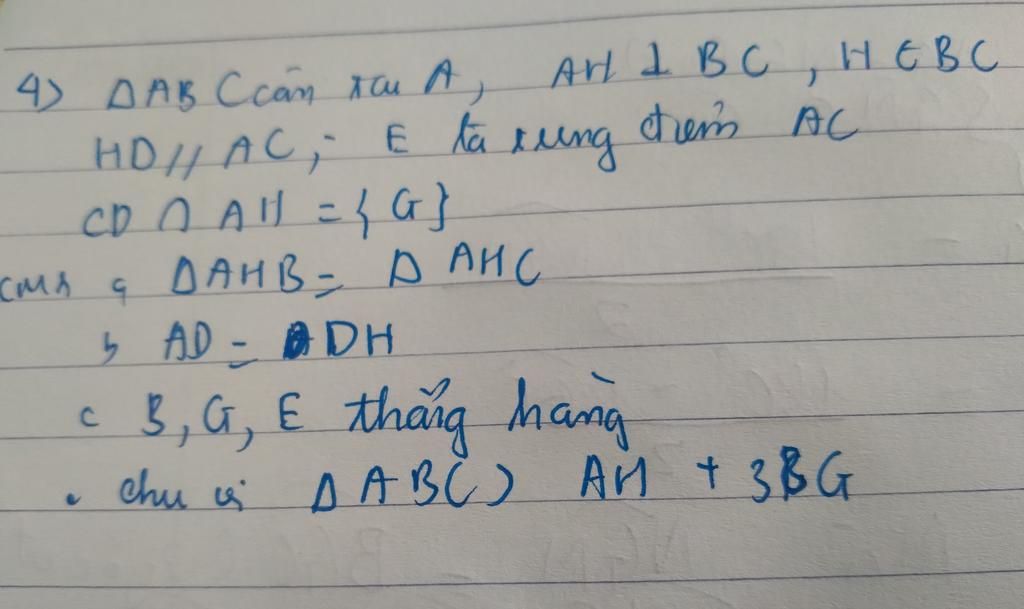 4) ΔABC cân tại A, AH ⊥ BC, H ∈ BC
HD // AC; E là trung điểm AC
CD ∩ AH = {G}
cmr a ΔAHB = ΔAHC
b AD = DH
c B, G, E thẳng hàng
• chu vi ΔABC > AH + 3BG